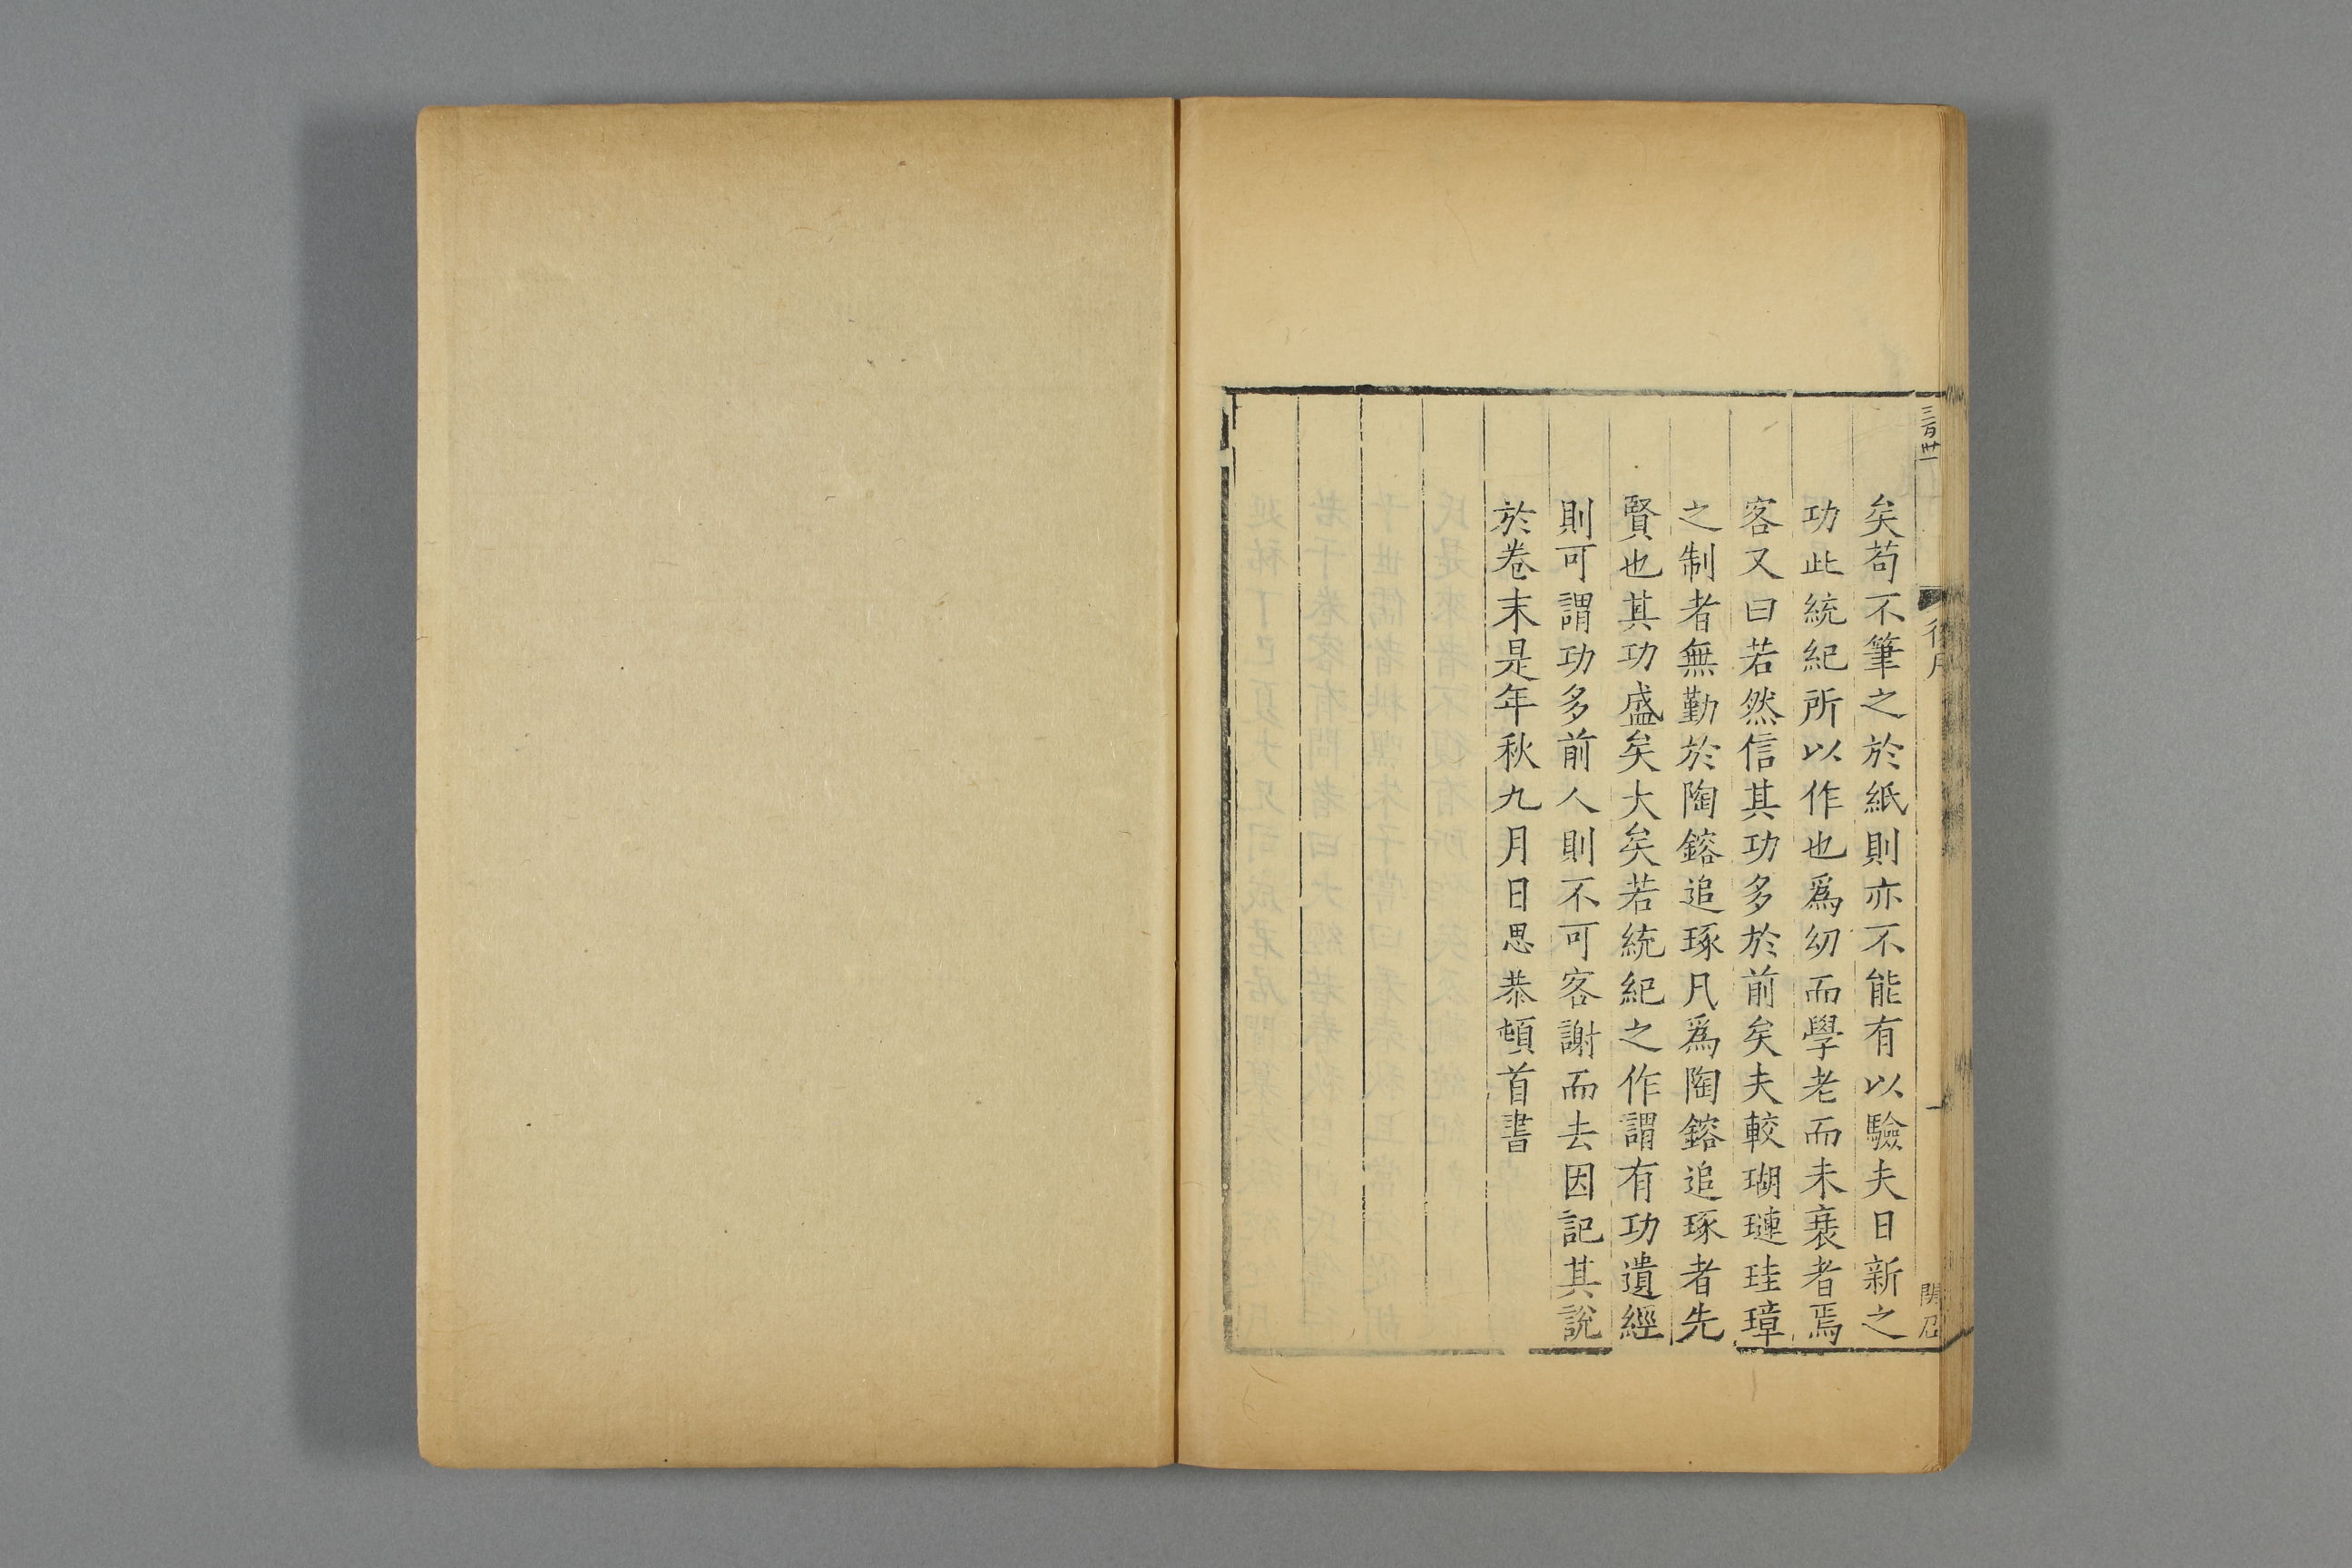 三百卅一
矣苟不筆之於紙則亦不能有以驗夫日新之
功此統紀所以作也爲幼而學老而未衰者焉
客又曰若然信其功多於前矣夫較瑚璉珪璋
之制者無勤於陶鎔追琢凡爲陶鎔追琢者先
賢也其功盛矣大矣若統紀之作謂有功遺經
則可謂功多前人則不可客謝而去因記其說
於卷末是年秋九月日思恭頓首書